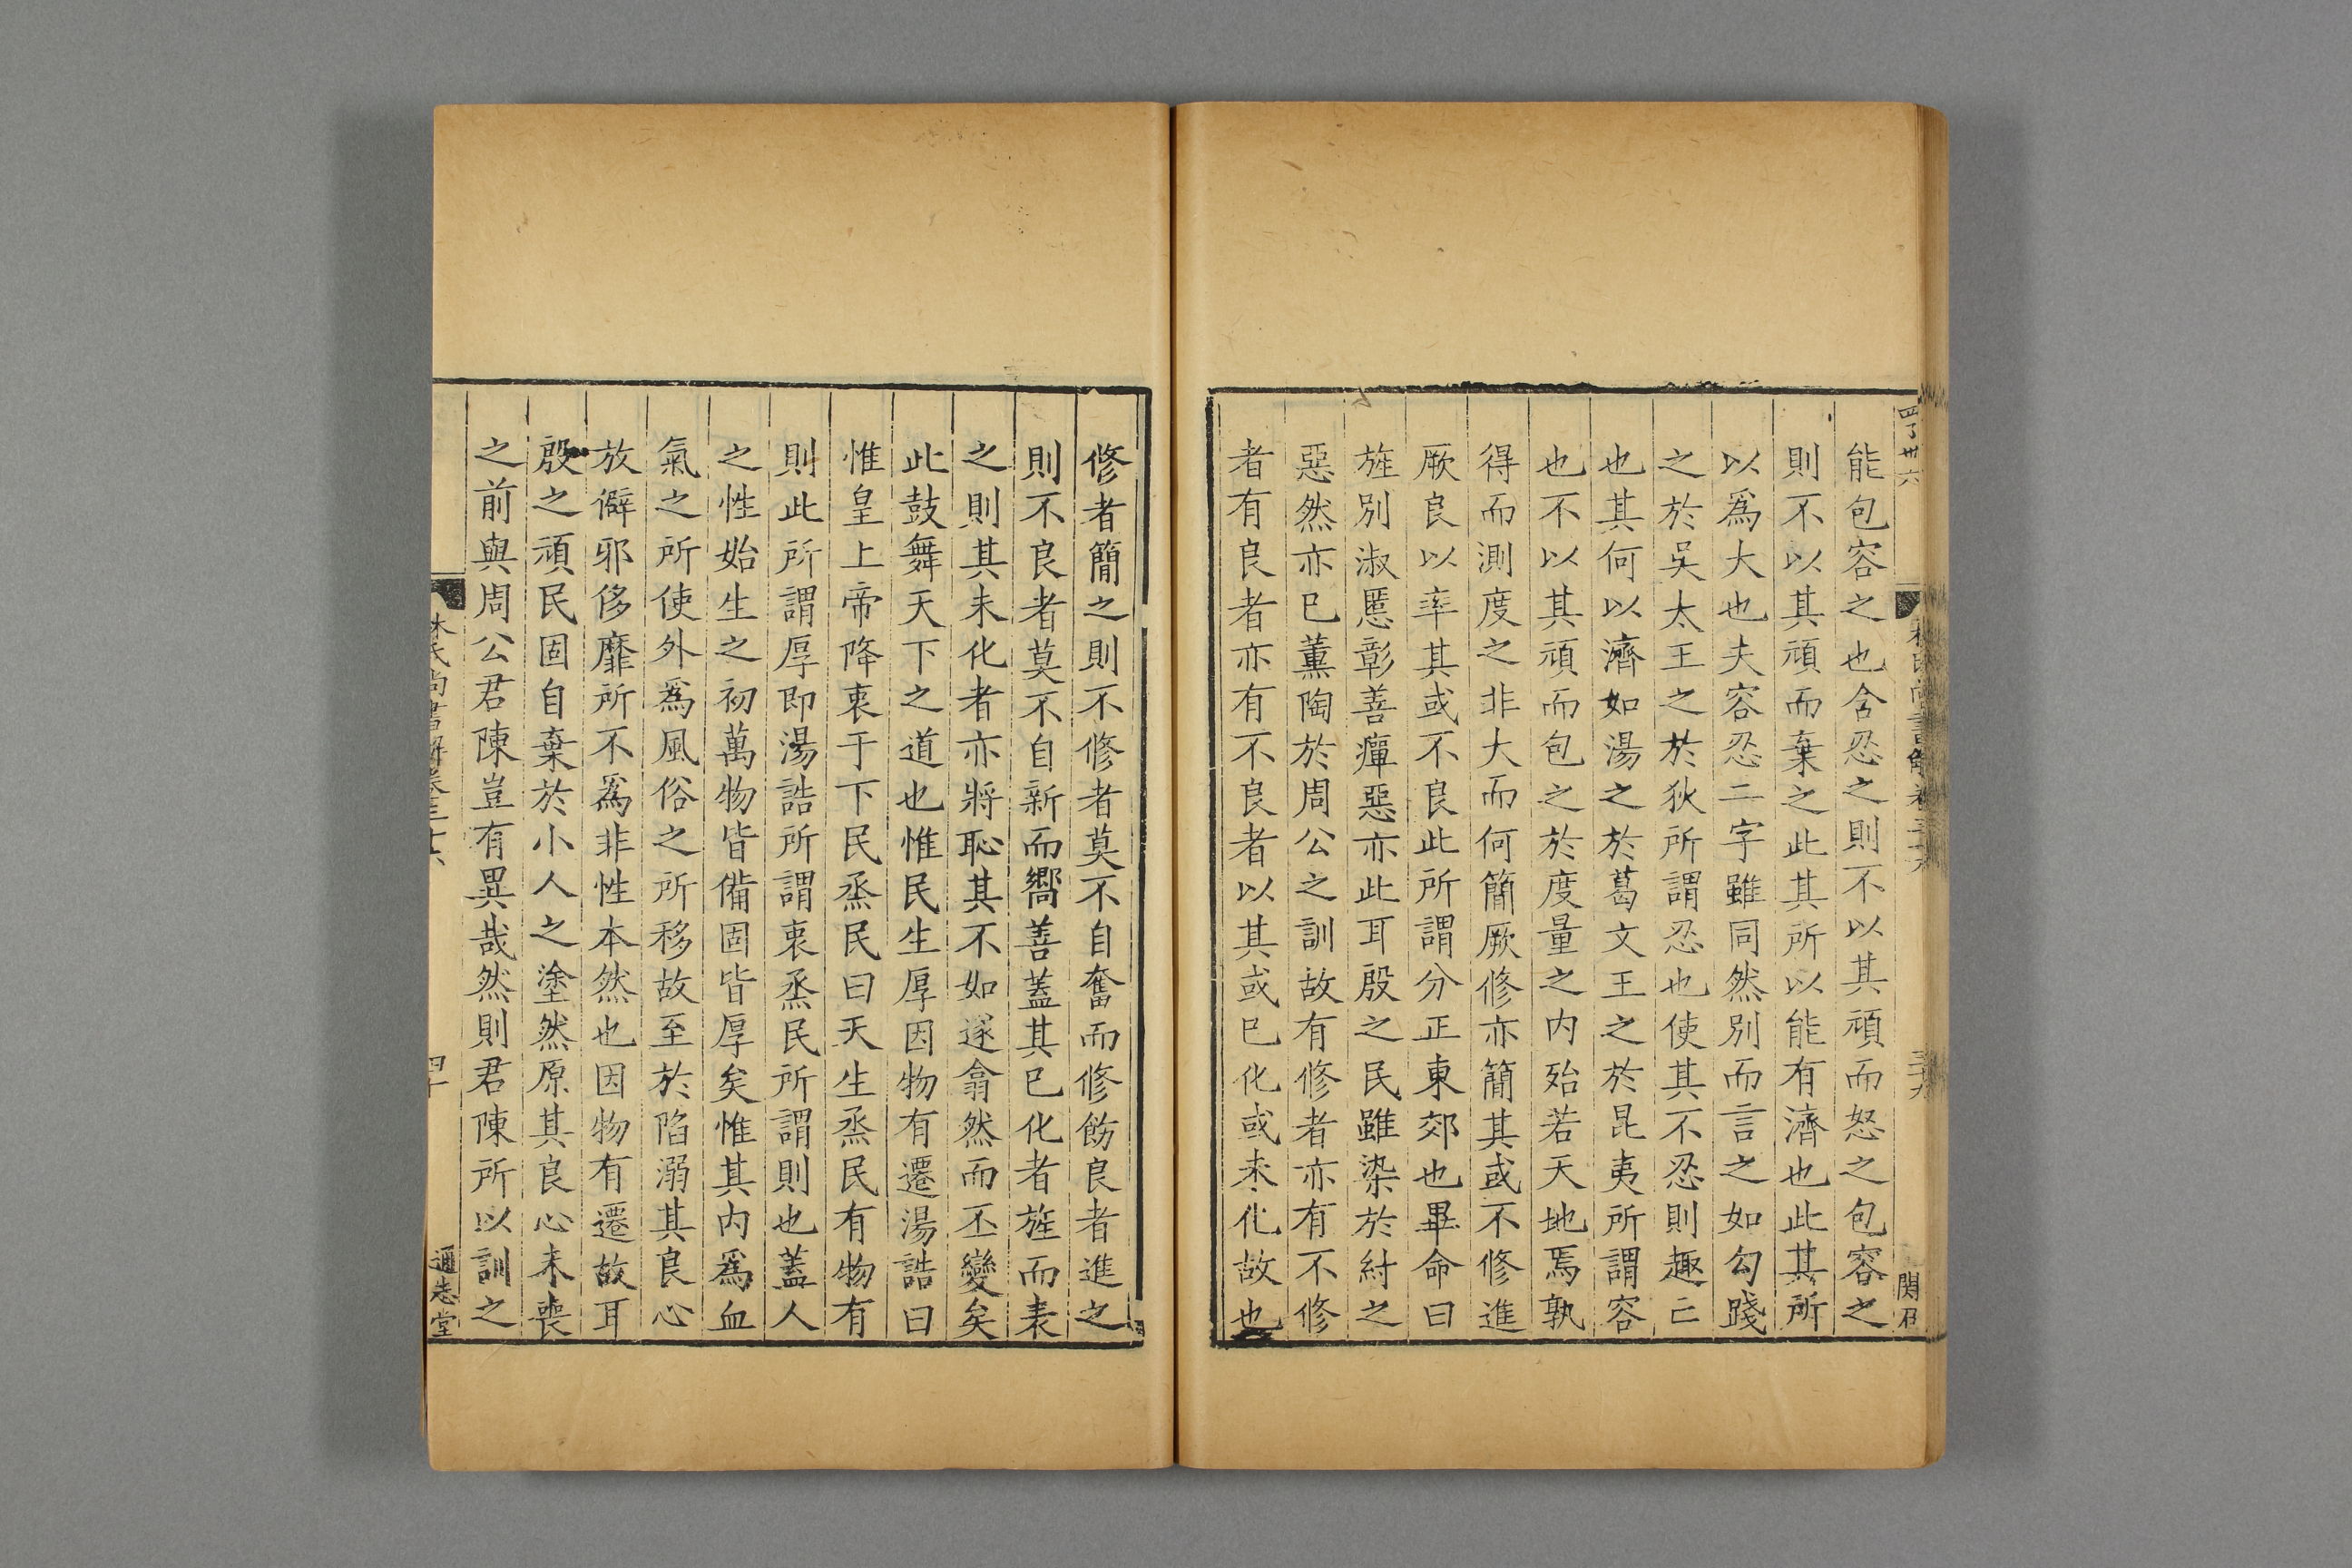 能包容之也含忍之則不以其頑而怒之包容之
則不以其頑而棄之此其所以能有濟也此其所
以爲大也夫容忍二字雖同然別而言之如勾踐
之於吳太王之於狄所謂忍也使其不忍則趣亡
也其何以濟如湯之於葛文王之於昆夷所謂容
也不以其頑而包之於度量之内殆若天地焉孰
得而測度之非大而何簡厥修亦簡其或不修進
厥良以率其或不良此所謂分正東郊也畢命曰
旌別淑慝彰善癉惡亦此耳殷之民雖染於紂之
惡然亦已薰陶於周公之訓故有修者亦有不修
者有良者亦有不良者以其或已化或未化故也
修者簡之則不修者莫不自奮而修飭良者進之
則不良者莫不自新而嚮善蓋其已化者旌而表
之則其未化者亦將恥其不如遂翕然而丕變矣
此鼓舞天下之道也惟民生厚因物有遷湯誥曰
惟皇上帝降衷于下民烝民曰天生烝民有物有
則此所謂厚即湯誥所謂衷烝民所謂則也蓋人
之性始生之初萬物皆備固皆厚矣惟其内爲血
氣之所使外爲風俗之所移故至於陷溺其良心
放僻邪侈靡所不爲非性本然也因物有遷故耳
殷之頑民固自棄於小人之塗然原其良心未喪
之前與周公君陳豈有異哉然則君陳所以訓之
林氏尚書解卷三十六
四十
通志堂